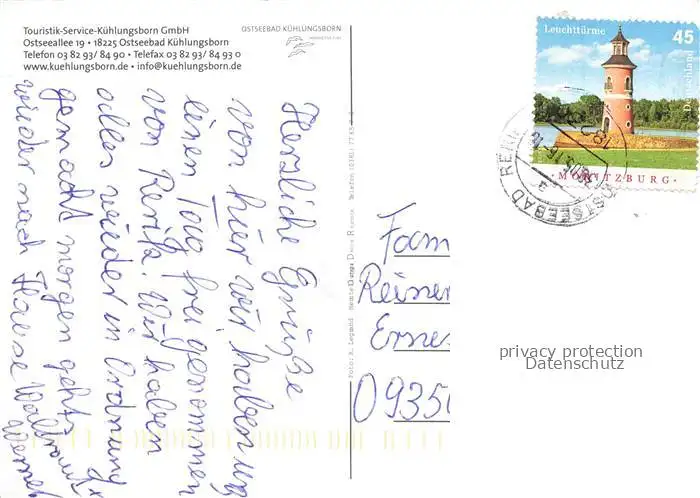 Touristik-Service-Kühlungsborn GmbH
Ostseeallee 19 • 18225 Ostseebad Kühlungsborn
Telefon 03 82 93/ 84 90 • Telefax 03 82 93/ 84 93 0
www.kuehlungsborn.de • info@kuehlungsborn.de
OSTSEEBAD KÜHLUNGSBORN
Herzliche Grüße
von hier wir haben uns
einen Tag frei genommen
von Rerik. Wir haben
alles wieder in Ordnung
gemacht morgen geht's
wieder nach Hause Waltraud
Werner
Foto: R. Legrand
Leuchttürme
45
Deutschland
MORITZBURG
OSTSEEBAD RERIK
Fam
Reiner
Ernes
0935
privacy protection
Datenschutz